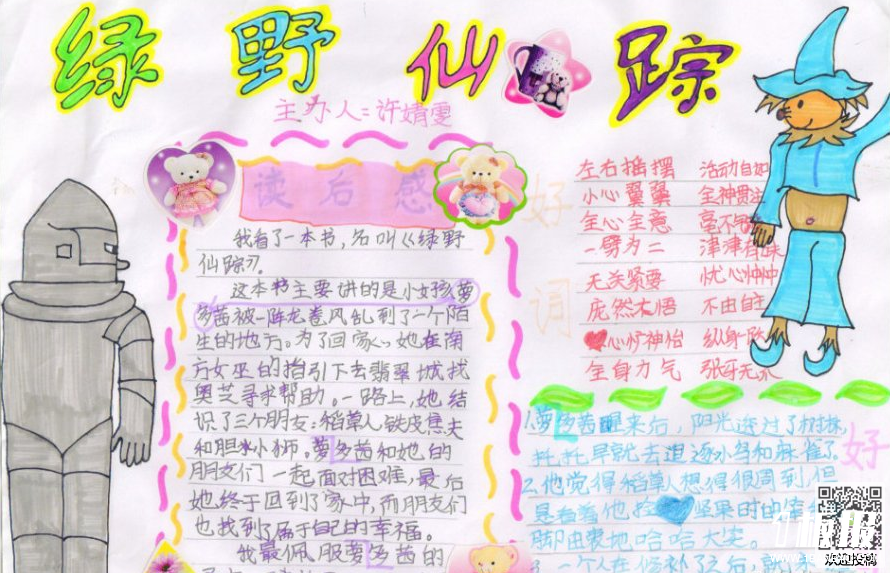 绿野仙踪
主办人：许婧雯
读后感
我看了一本书，名叫《绿野
仙踪》。
这本书主要讲的是小女孩萝
多茜被一阵龙卷风乱到了一个陌
生的地方。为了回家，她在南
方女巫的指引下去翡翠城找
奥芝寻求帮助。一路上，她结
识了三个朋友：稻草人铁皮焦夫
和胆小狮。萝多茜和她的
朋友们一起面对困难，最后
她终于回到了家中，而朋友们
也找到了属于自己的幸福。
我最佩服萝多茜的
好词
左右摇摆 活动自如
小心翼翼 全神贯注
全心全意 毫不
一劈为二 津津有味
无关紧要 忧心忡忡
庞然大悟 不由自主
心旷神怡 纵身一跃
全身力气 张牙无爪
好
1.萝多茜醒来后，阳光透过了树梢，
托托早就去追逐小鸟和麻雀了。
2.他觉得稻草人想得很周到，但
是看着他捡坚果时的
脚由衷地哈哈大笑。
欢迎投稿